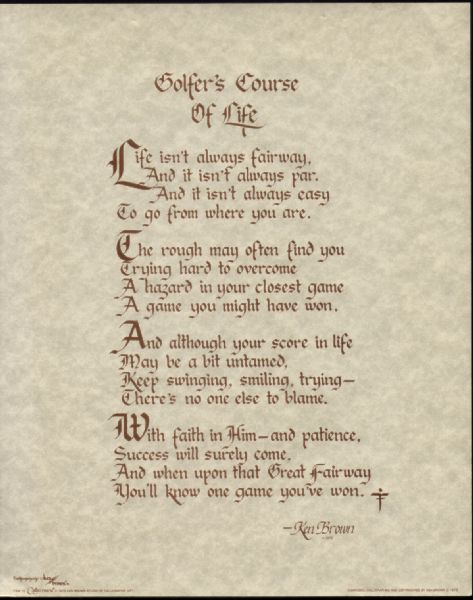 Golfer's Course
Of Life
Life isn't always fairway,
And it isn't always par.
And it isn't always easy
To go from where you are.
The rough may often find you
Trying hard to overcome
A hazard in your closest game
A game you might have won.
And although your score in life
May be a bit untamed,
Keep swinging, smiling, trying—
There's no one else to blame.
With faith in Him—and patience,
Success will surely come,
And when upon that Great Fairway
You'll know one game you've won.
—Ken Brown